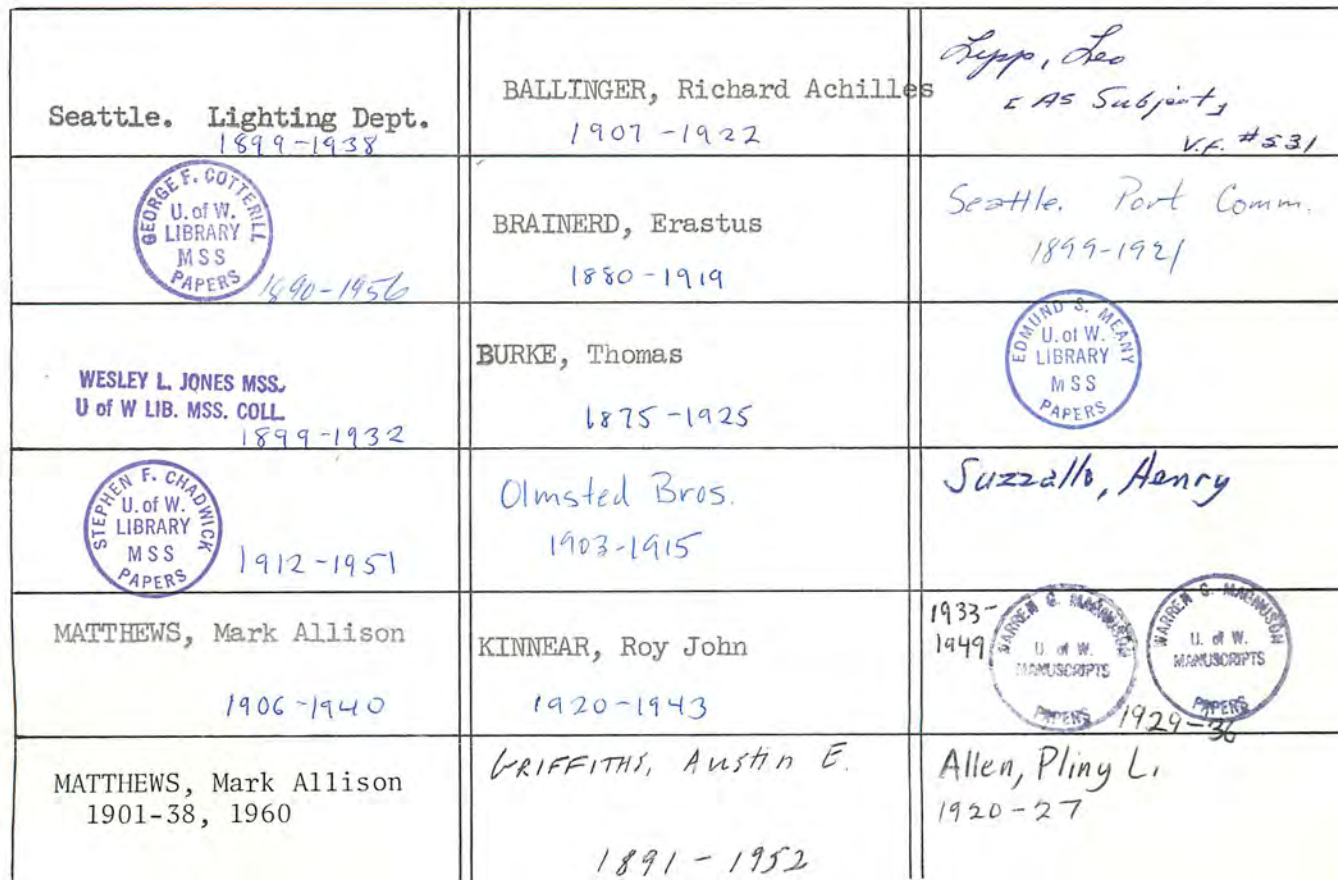 Seattle. Lighting Dept.
1899-1938
BALLINGER, Richard Achilles
1907-1922
Leo
[As Subject]
V.F. #531
GEORGE F. COTTERILL
U. of W.
LIBRARY
MSS
PAPERS
1890-1956
BRAINERD, Erastus
1880-1919
Seattle. Port Comm.
1899-1921
WESLEY L. JONES MSS.
U of W LIB. MSS. COLL.
1899-1932
BURKE, Thomas
1875-1925
EDMUND S. MEANY
U. of W.
LIBRARY
MSS
PAPERS
STEPHEN F. CHADWICK
U. of W.
LIBRARY
MSS
PAPERS
1912-1951
Olmsted Bros.
1903-1915
Suzzallo, Henry
MATTHEWS, Mark Allison
1906-1940
KINNEAR, Roy John
1920-1943
1933-
1949
WARREN G. MAGNUSON
U. of W.
MANUSCRIPTS
PAPERS
WARREN G. MAGNUSON
U. of W.
MANUSCRIPTS
PAPERS
1929-36
MATTHEWS, Mark Allison
1901-38, 1960
GRIFFITHS, Austin E.
1891-1952
Allen, Pliny L.
1920-27